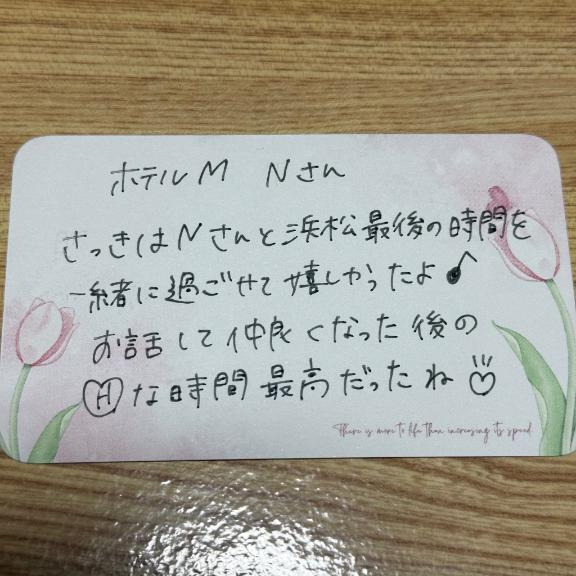 ホテルM Nさん
さっきはNさんと浜松最後の時間を
一緒に過ごせて嬉しかったよ♪
お話して仲良くなった後の
Hな時間最高だったね♡
There is more to life than increasing its speed.